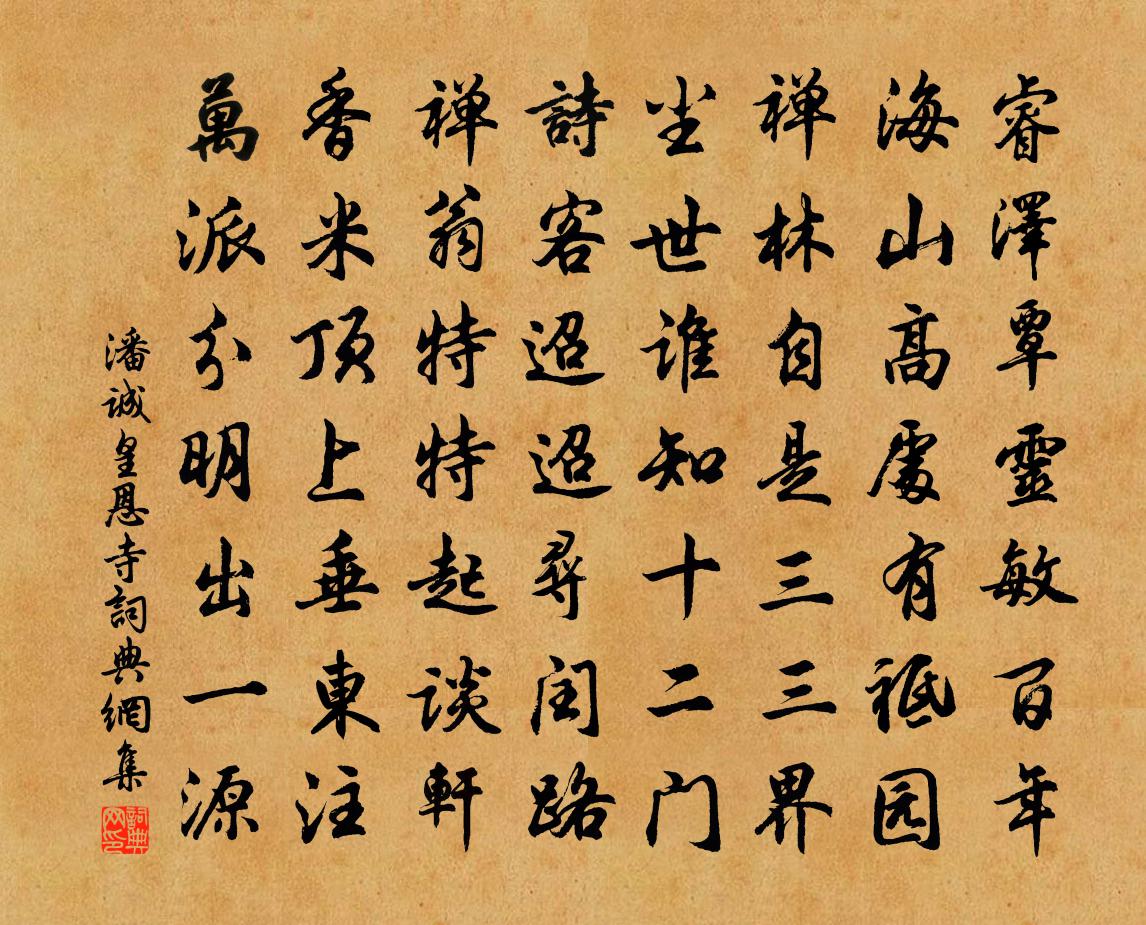 睿澤覃靈敏百年
海山高處有祗园
禅林自是三三界
尘世谁知十二门
詩客迢迢尋闰路
禅翁特特起谈軒
香米顶上垂東注
萬派分明出一源
潘诚皇恩寺詞典網集
詞典网印